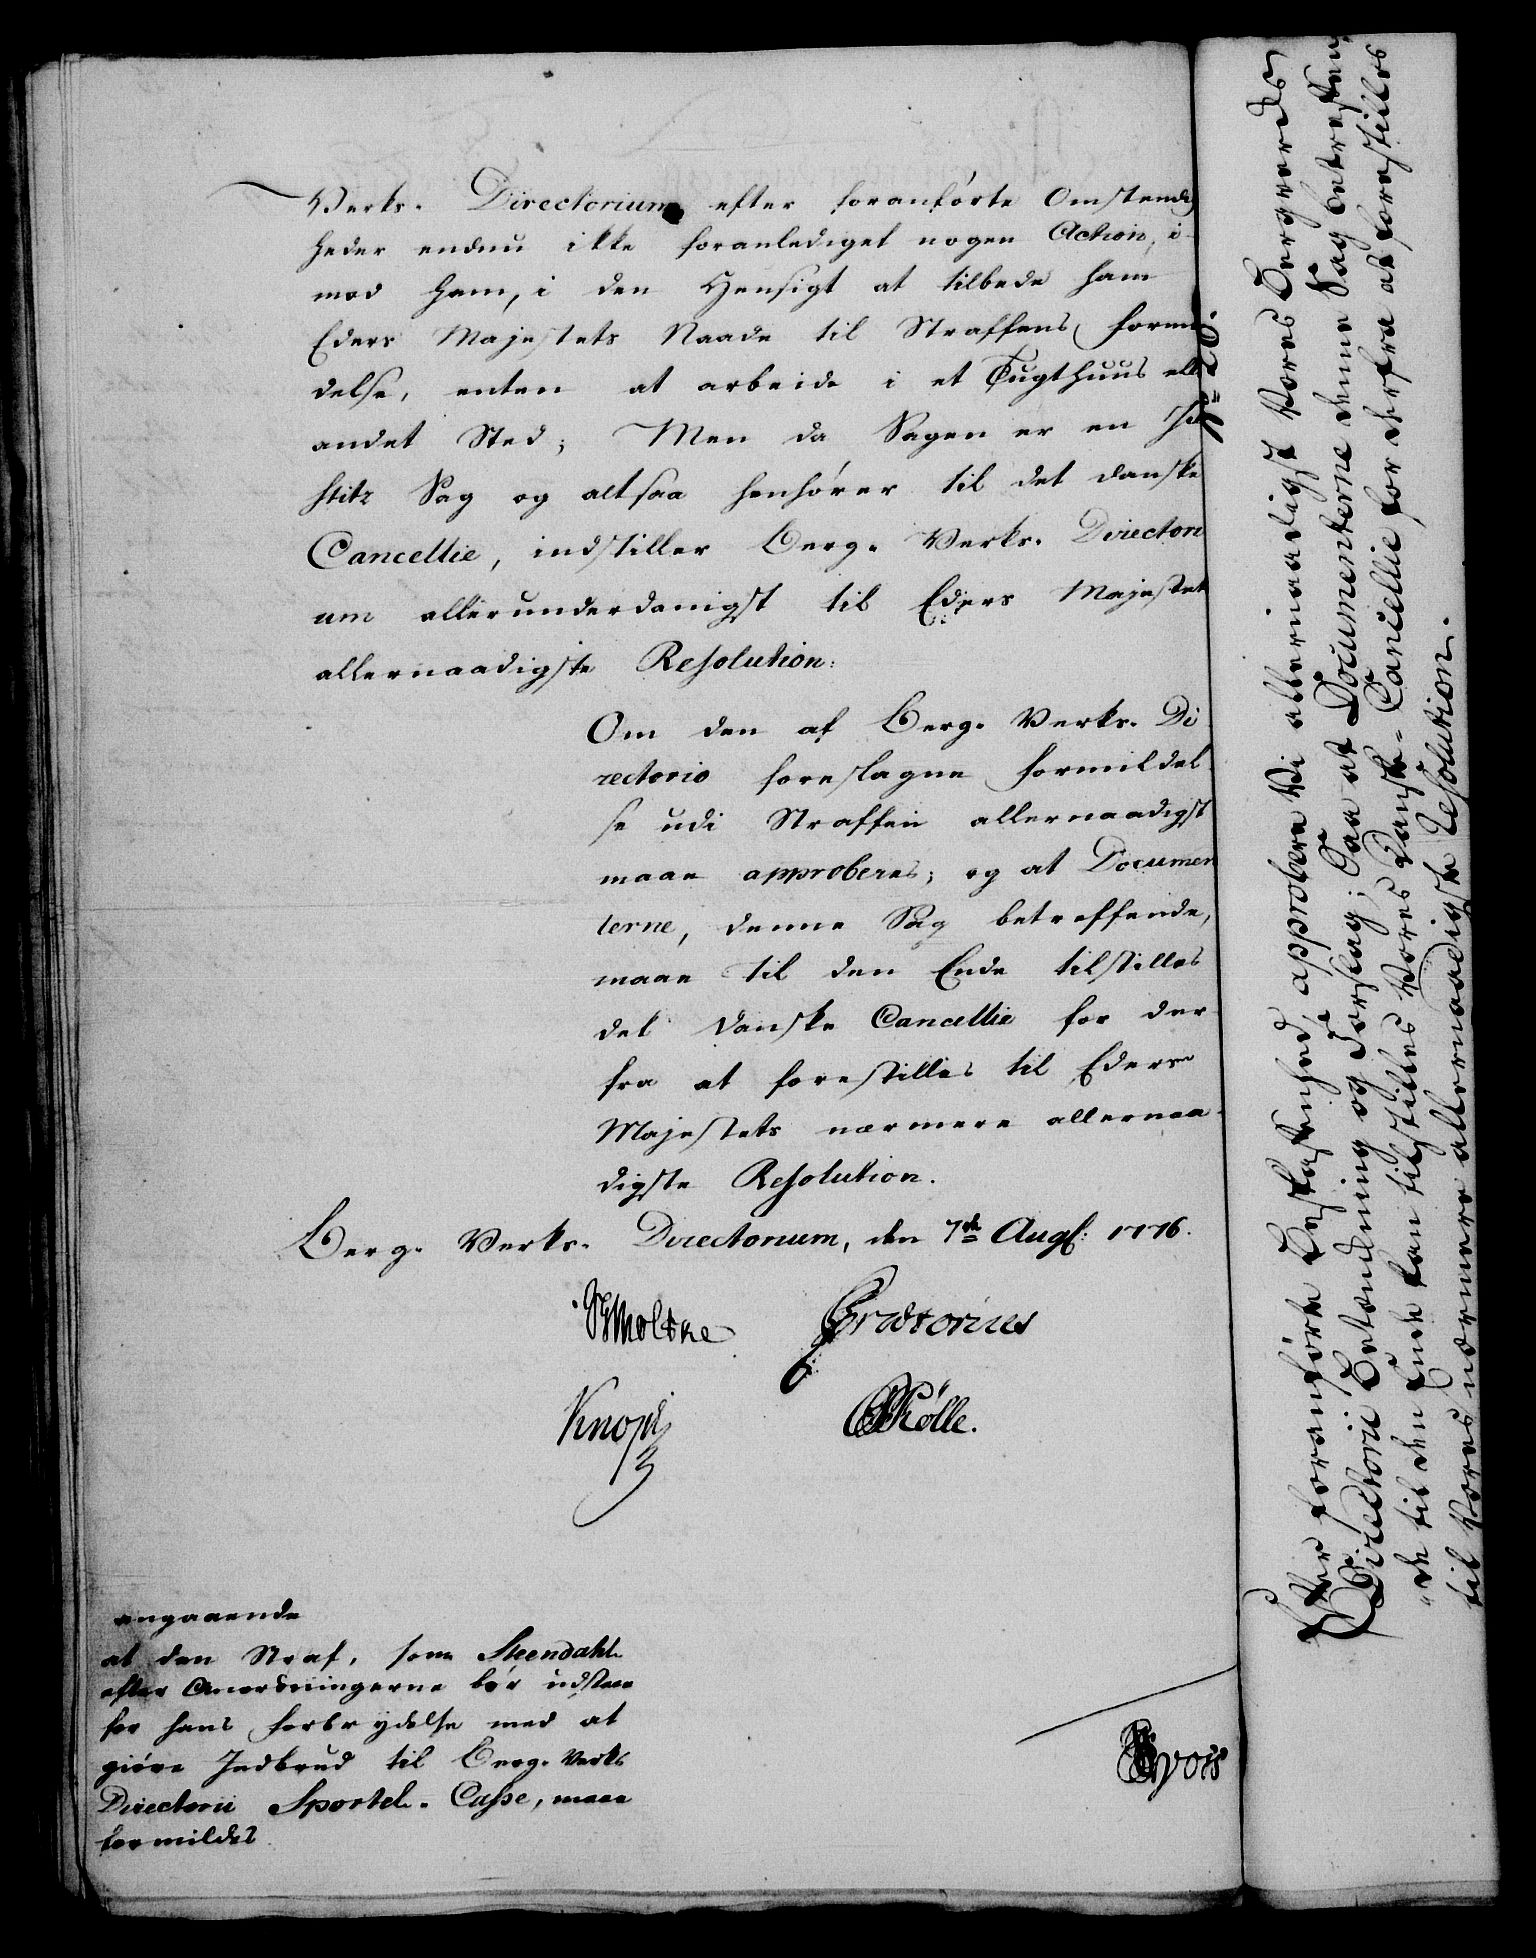 Verks. Directorium efter foranførte Omstendig
heder endnu ikke foranlediget nogen Action, i-
mod ham, i den Hensigt at tilbede ham
Eders Majestets Naade til Straffens formil
delse, enten at arbeide i et Tugthuus eller
andet Sted; Men da Sagen er en Ju
stitz Sag og altsaa henhører til det danske
Cancellie, indstiller Berg. Verks. Directori
um allerunderdanigst til Eders Majestets
allernaadigste Resolution:
Om den af Berg. Verks. Di
rectorio foreslagne formildel
se udi Straffen allernaadigst
maae approberes; og at Documen
terne, denne Sag betreffende,
maae til den Ende tilstilles
det danske Cancellie for der
fra at forestilles til Eders
Majestets nærmere allernaa-
digste Resolution.
Berg. Verks. Directorium, den 7de Augs: 1776.
Moltke Prætorius
Knoph Kølle.
angaaende
at den Straf, som Steendahl
efter Anordningerne bør udstaae
for hans forbrydelse med at
giøre Indbrud til Berg. Verks
Directorii Sportel. Casse, maae
formildes
No 26.
Efter foranførte Beskaffenhed, approbere Vi allernaadigst Vores Bergverks
Directorii Betænkning og Forslag; Saa at Documenterne denne Sag betreffen,
"de til den Ende kan tilstilles Vores Danske Cancellie for derfra at forestilles
til Vores nærmere allernaadigste Resolution.